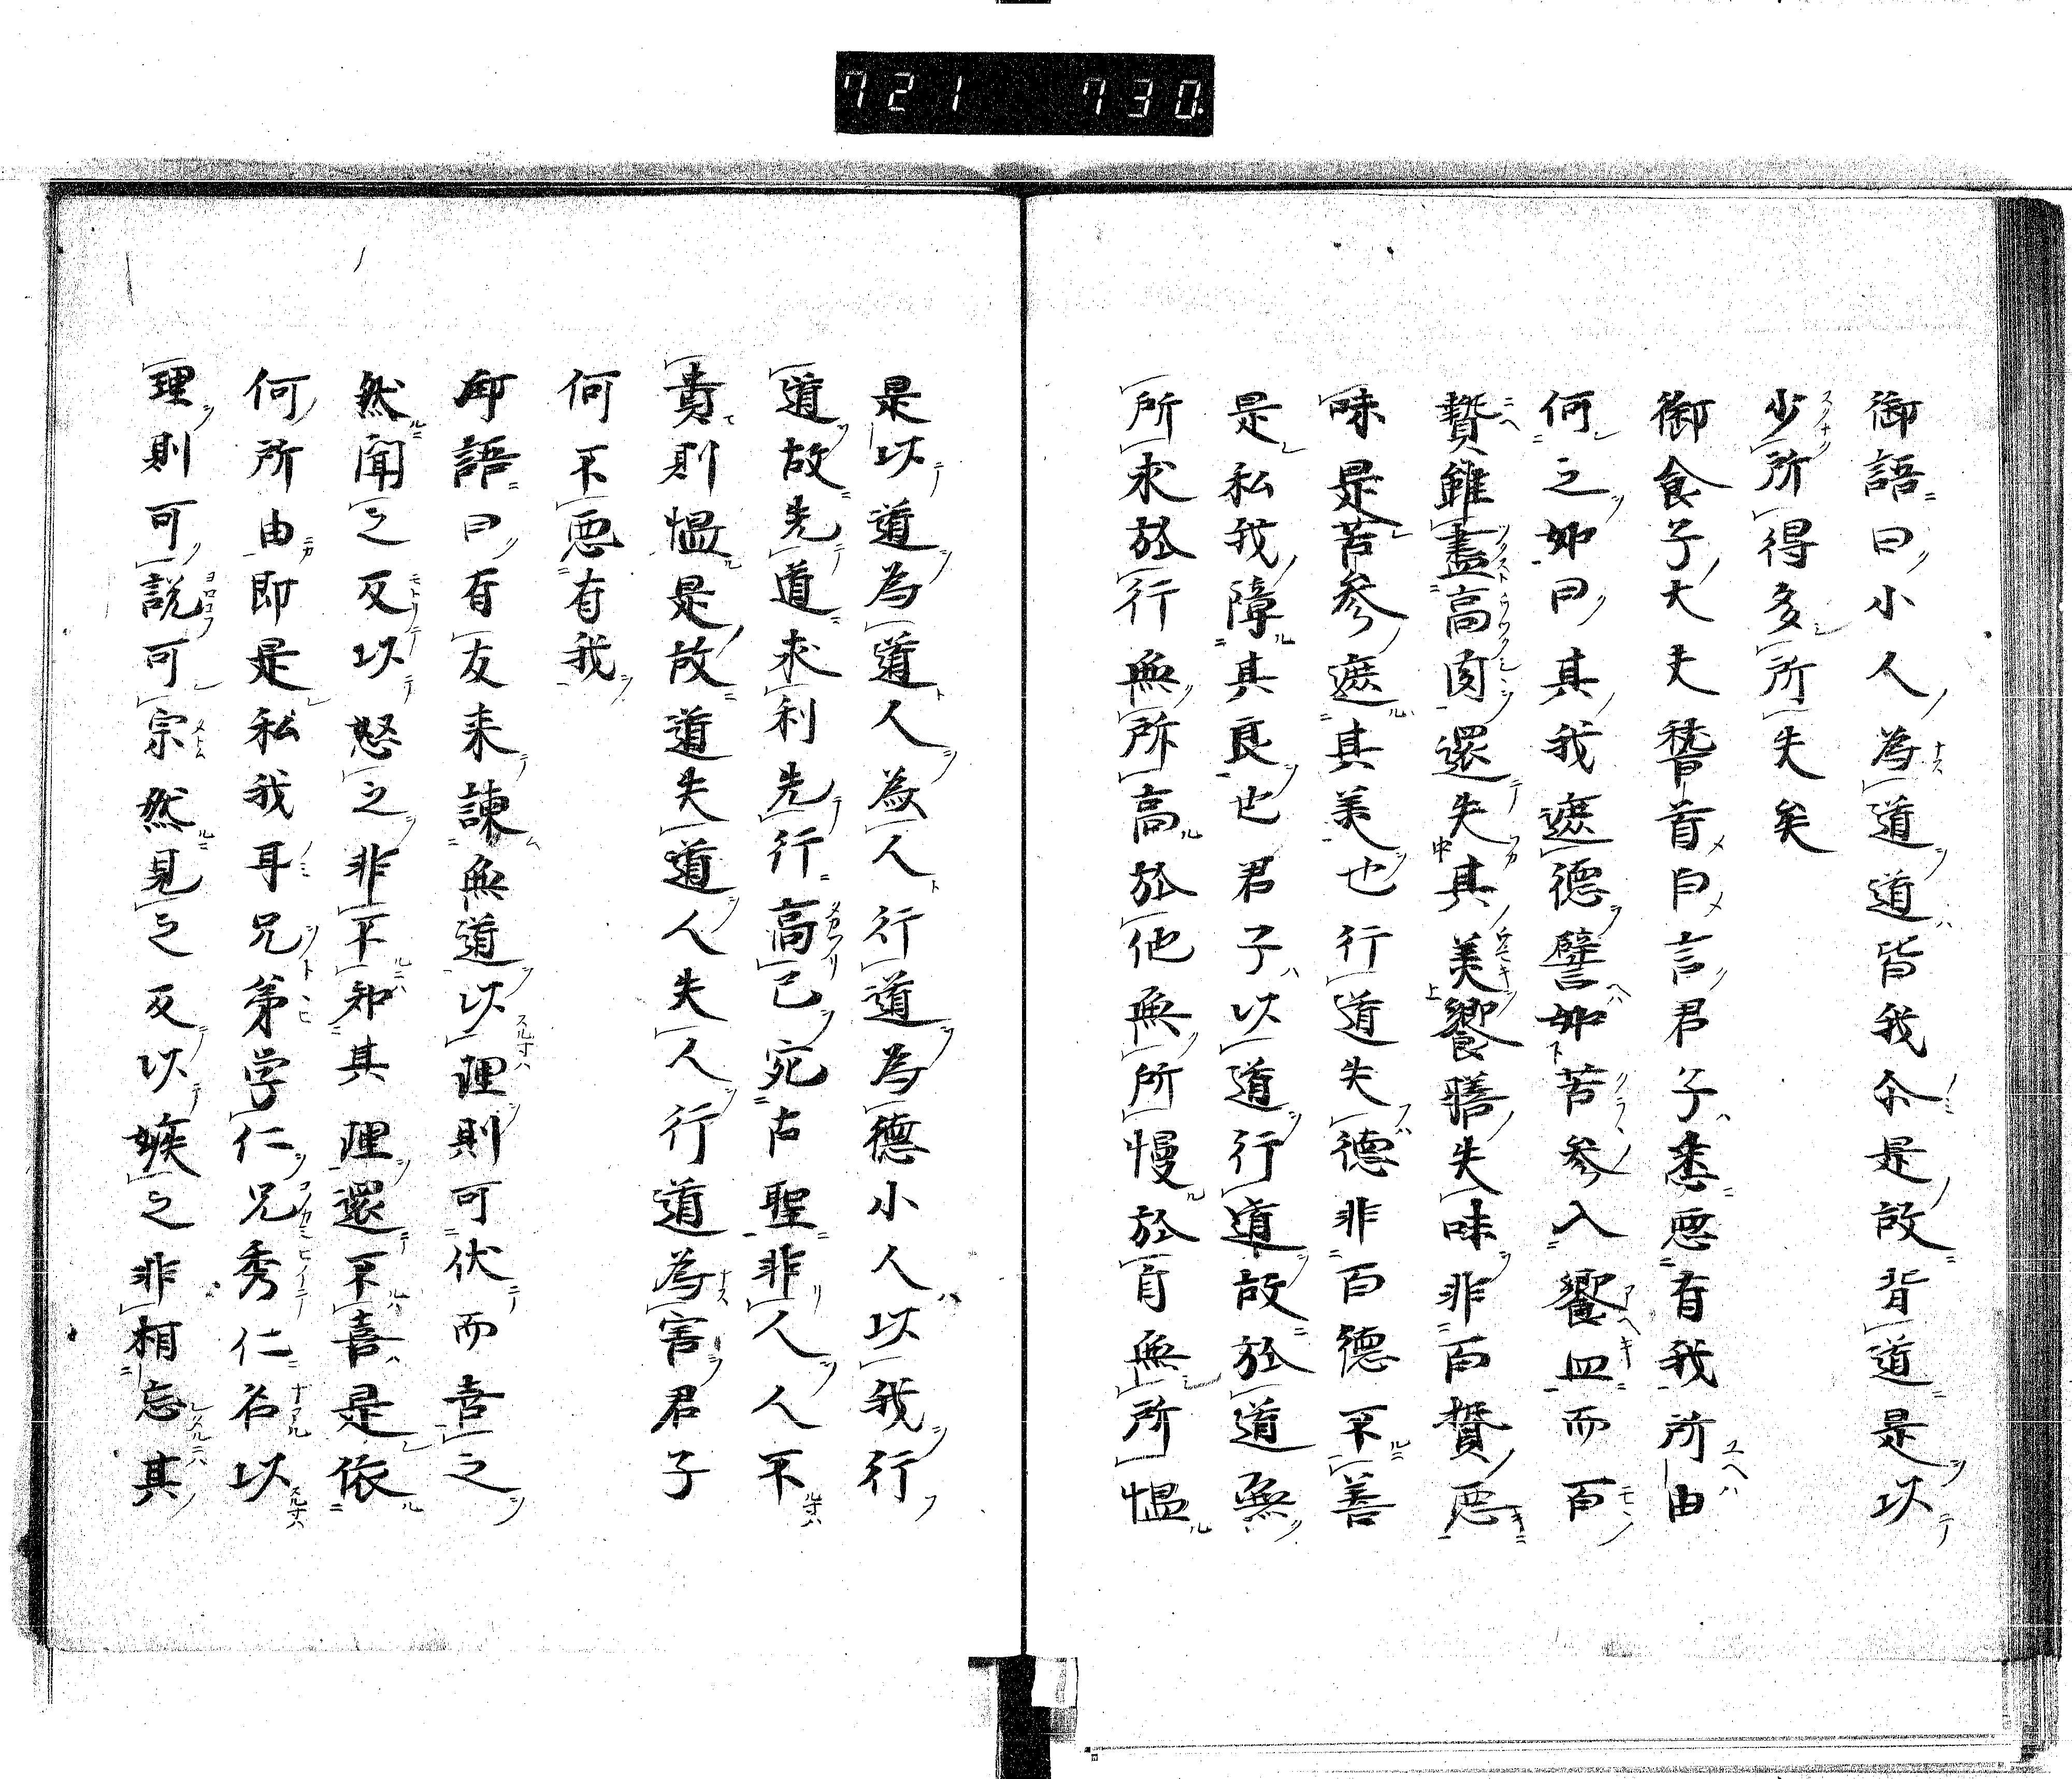 721 730
御語曰小人為道道皆我介是故背道是以
少所得多所失矣
御食子大夫稽首白言君子悉惡有我所由
何之如曰其我遮德譬如苦参入饗皿而百
贄雖盡高肉還失其美饗膳失味非百贄惡
味是苦参遮其美也行道失德非百德不善
是私我障其良也君子以道行道故於道無
所求於行無所高於他無所慢於盲無所慍
是以道為道人為人行道為德小人以我行
道故先道求利先行高己宛古聖非人人不
貴則慍是故道失道人失人行道為害君子
何不惡有我
御語曰有友来諫無道以理則可伏而喜之
然聞之反以怒之非不知其理還不喜是依
何所由即是私我耳兄弟学仁兄秀仁名以
理則可説可宗然見之反以嫉之非相忘其